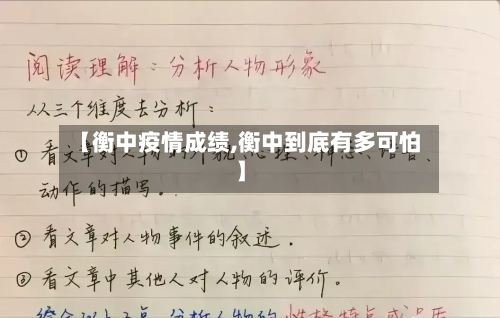 阅读理解：分析人物形象
从三个维度去分析：
【衡中疫情成绩,衡中到底有多可怕
】
① 看文章对人物的外貌、心理、神态、语言、
动作的描写。
② 看文章对人物事件的叙述.
③ 看文章中其他人对人物的评价。
分析人物的性格特点或品质